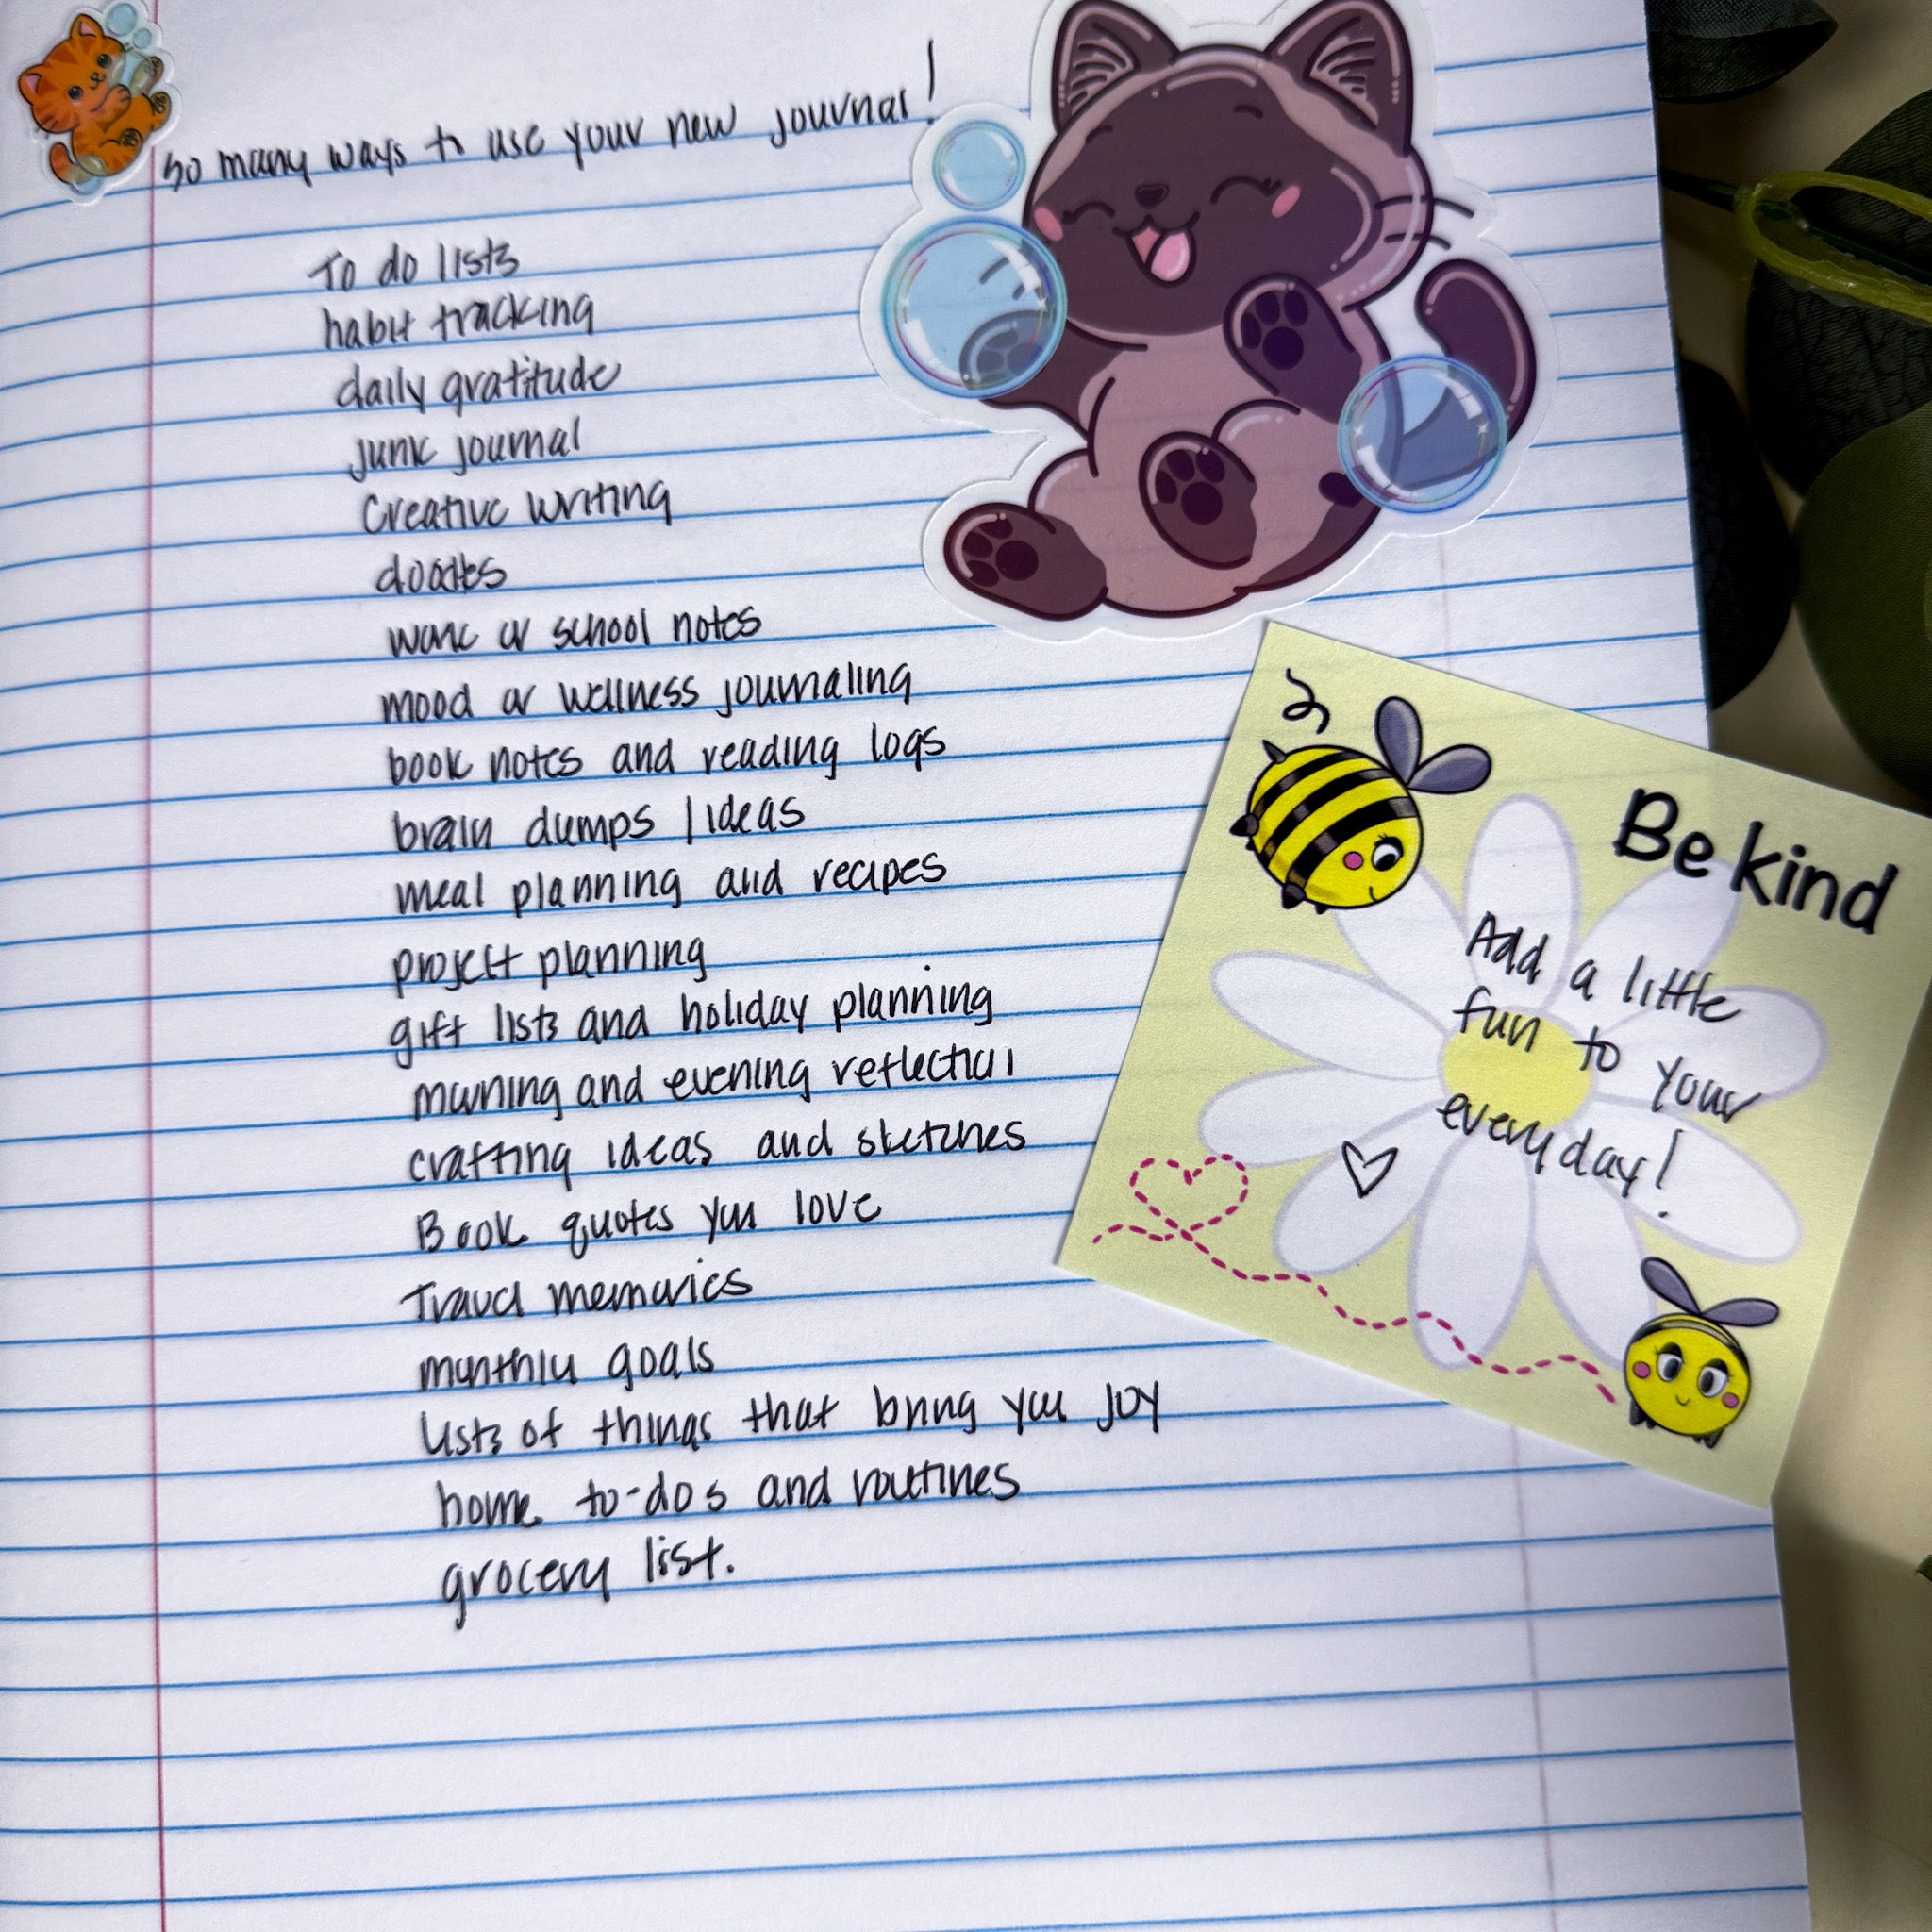 so many ways to use your new journal!
To do lists
habit tracking
daily gratitude
junk journal
Creative writing
doodles
work or school notes
mood or wellness journaling
book notes and reading logs
brain dumps / ideas
meal planning and recipes
project planning
gift lists and holiday planning
morning and evening reflection
crafting ideas and sketches
Book quotes you love
Travel memories
monthly goals
Lists of things that bring you joy
home to-dos and routines
grocery list.
Be kind
Add a little
fun to your
everyday!